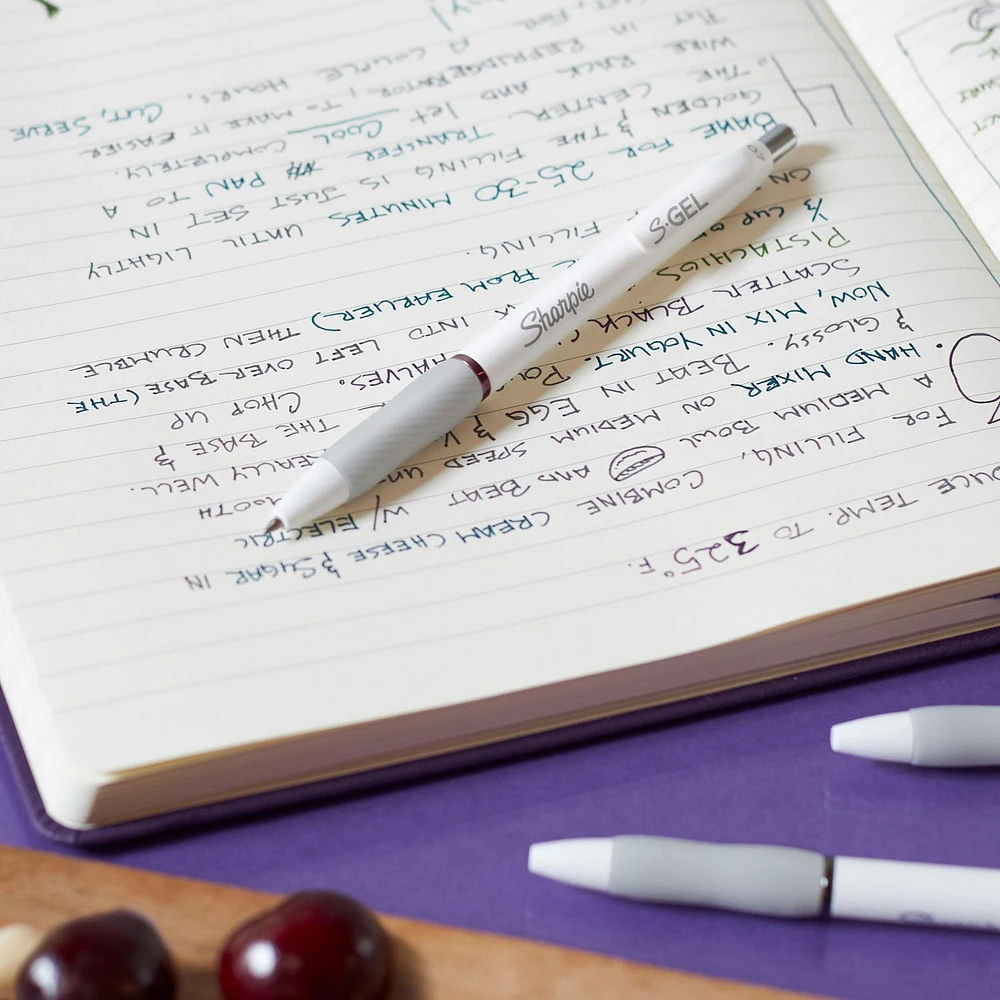 TEMP. TO 325°F.
3. FOR FILLING, COMBINE CREAM CHEESE & SUGAR IN
A MEDIUM BOWL AND BEAT W/ ELECTRIC
HAND MIXER ON MEDIUM SPEED
& GLOSSY. BEAT IN EGG & WELL.
NOW, MIX IN YOGURT. THE BASE &
SCATTER BLACK HALVES. CHOP UP
PISTACHIOS INTO LEFT OVER BASE (THE
⅓ CUP OF FROM EARLIER) THEN CRUMBLE
ON FILLING.
4 BAKE FOR 25-30 MINUTES UNTIL LIGHTLY
GOLDEN & THE FILLING IS JUST SET IN
THE CENTER. TRANSFER PAN TO A
WIRE RACK AND let COOL COMPLETELY.
PUT IN REFRIDGERATOR, TO MAKE IT EASIER
CUT, FOR A COUPLE HOURS. CUT, SERVE
Sharpie S·GEL